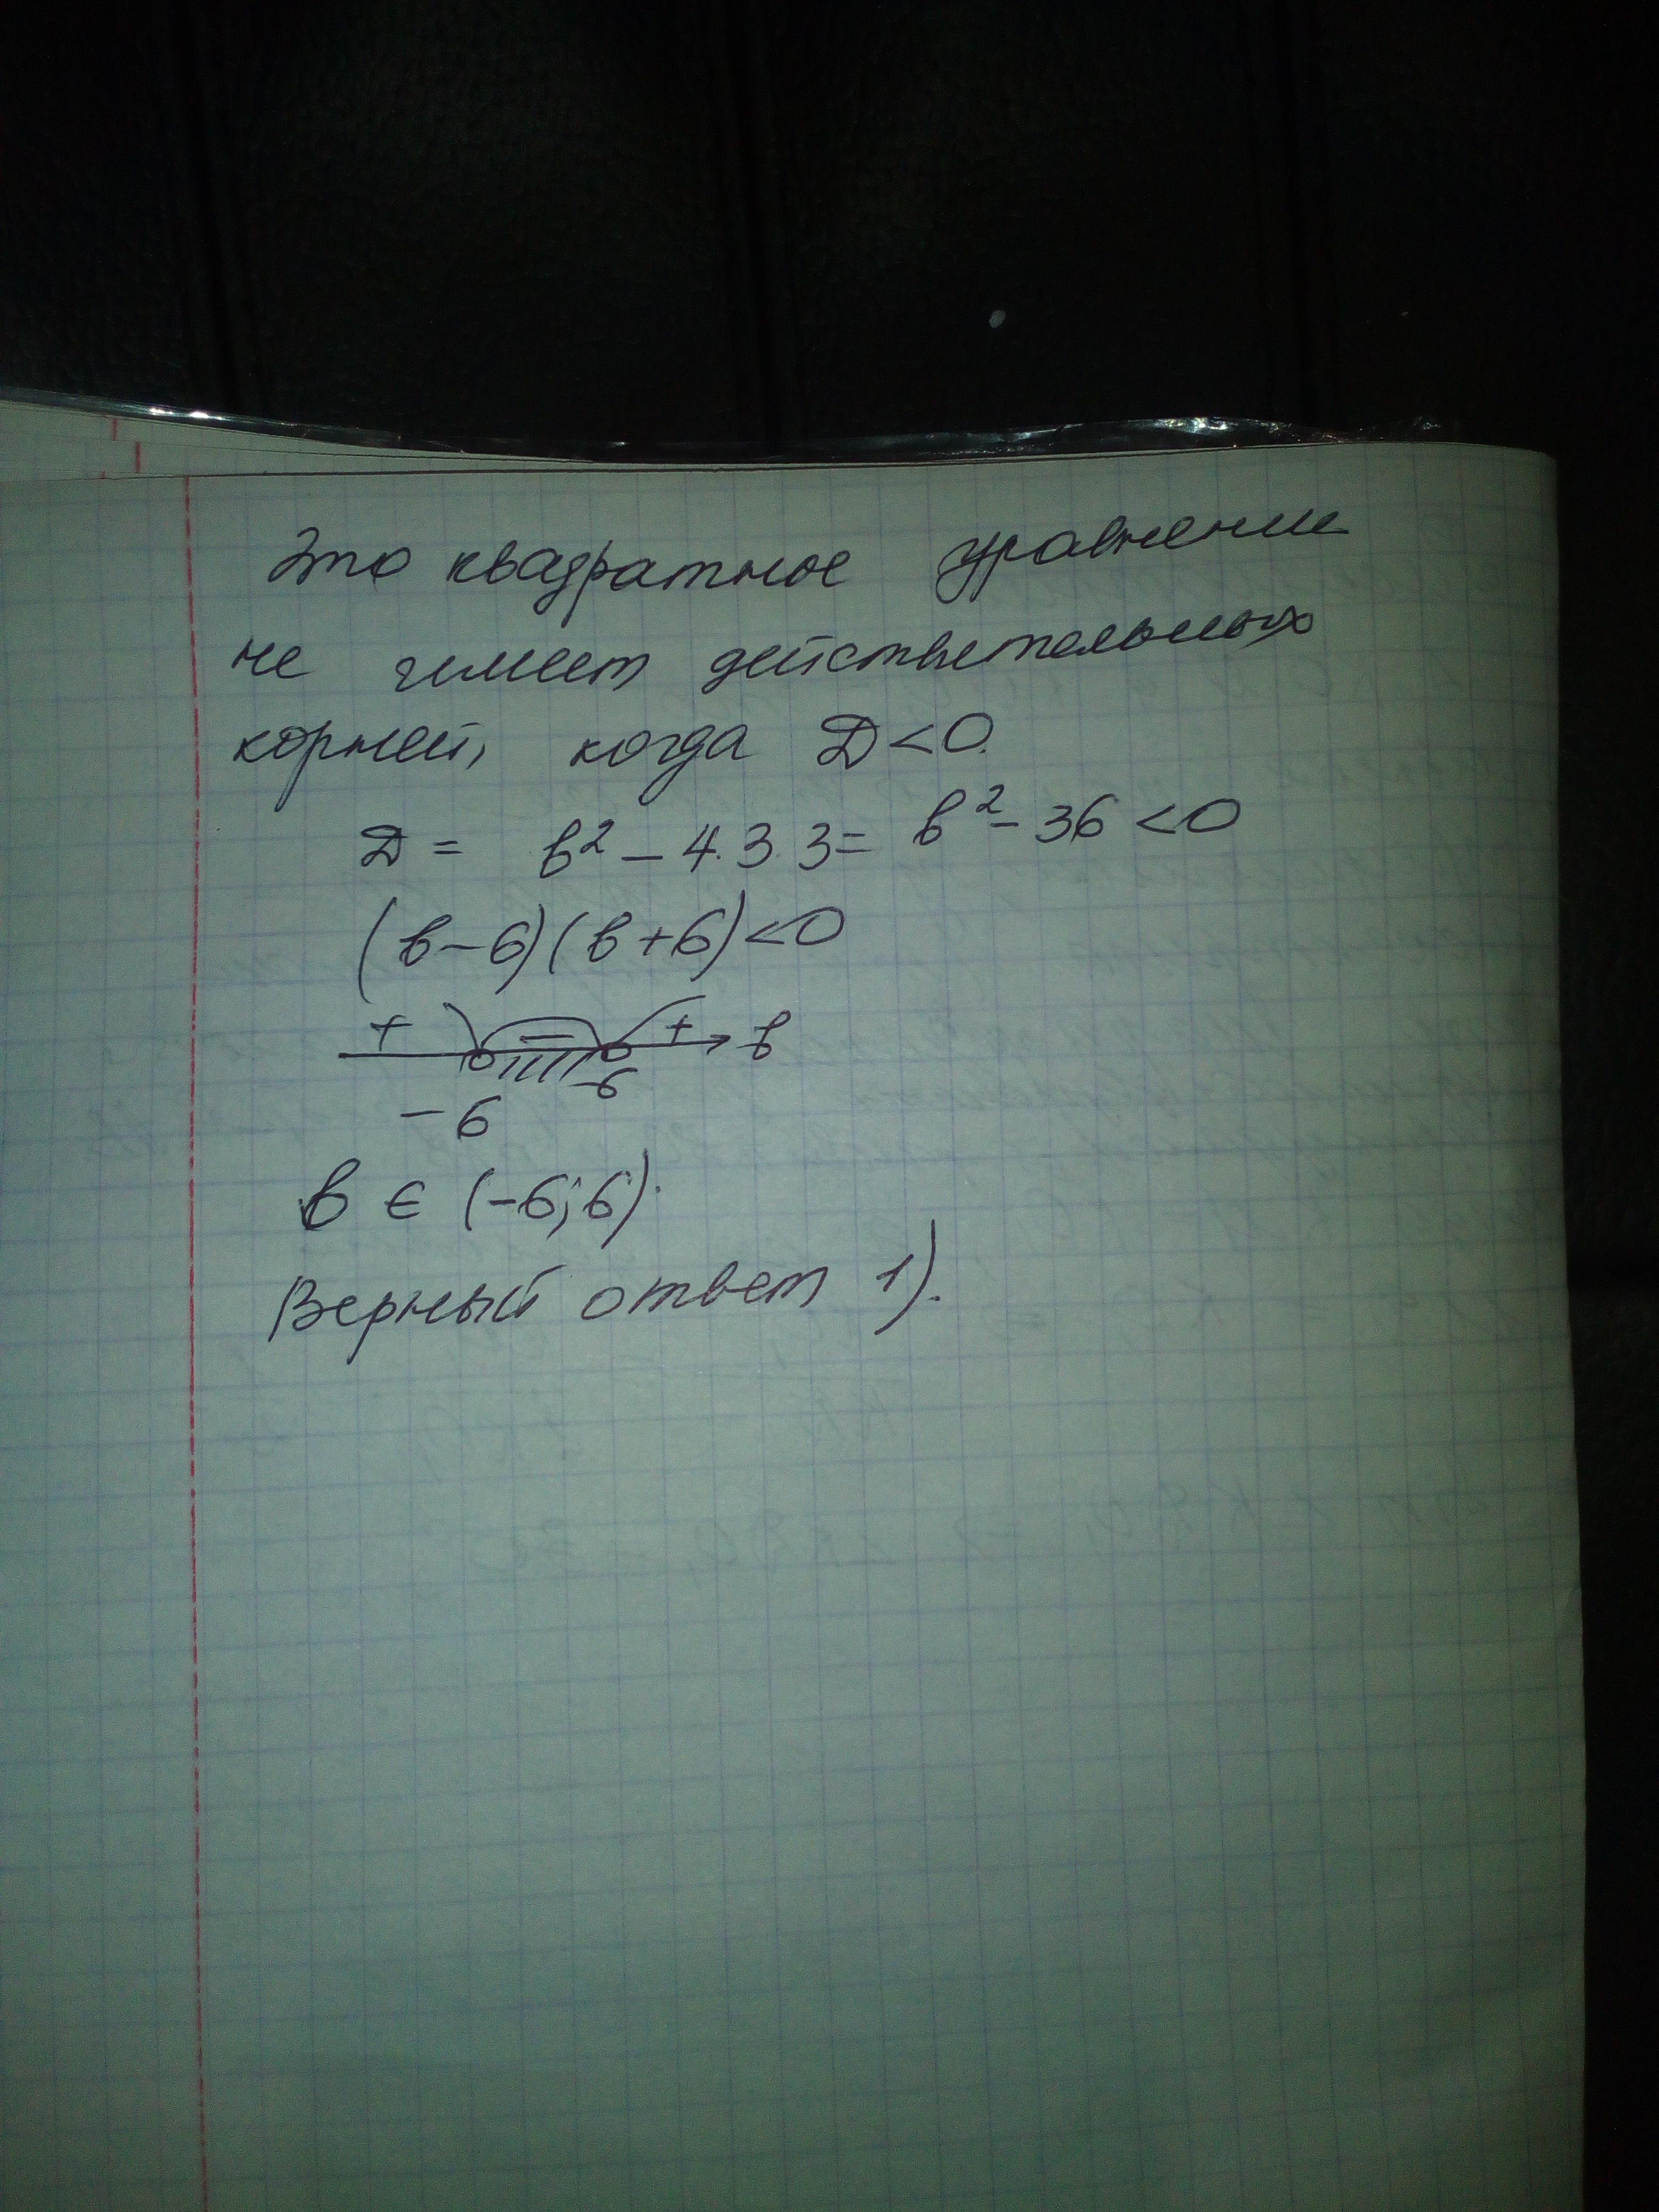 Это квадратное уравнение
не имеет действительных
корней, когда D<0.
D = b² - 4·3·3 = b² - 36 < 0
(b-6)(b+6)<0
+ - + b
-6 6
b ∈ (-6; 6).
Верный ответ 1).